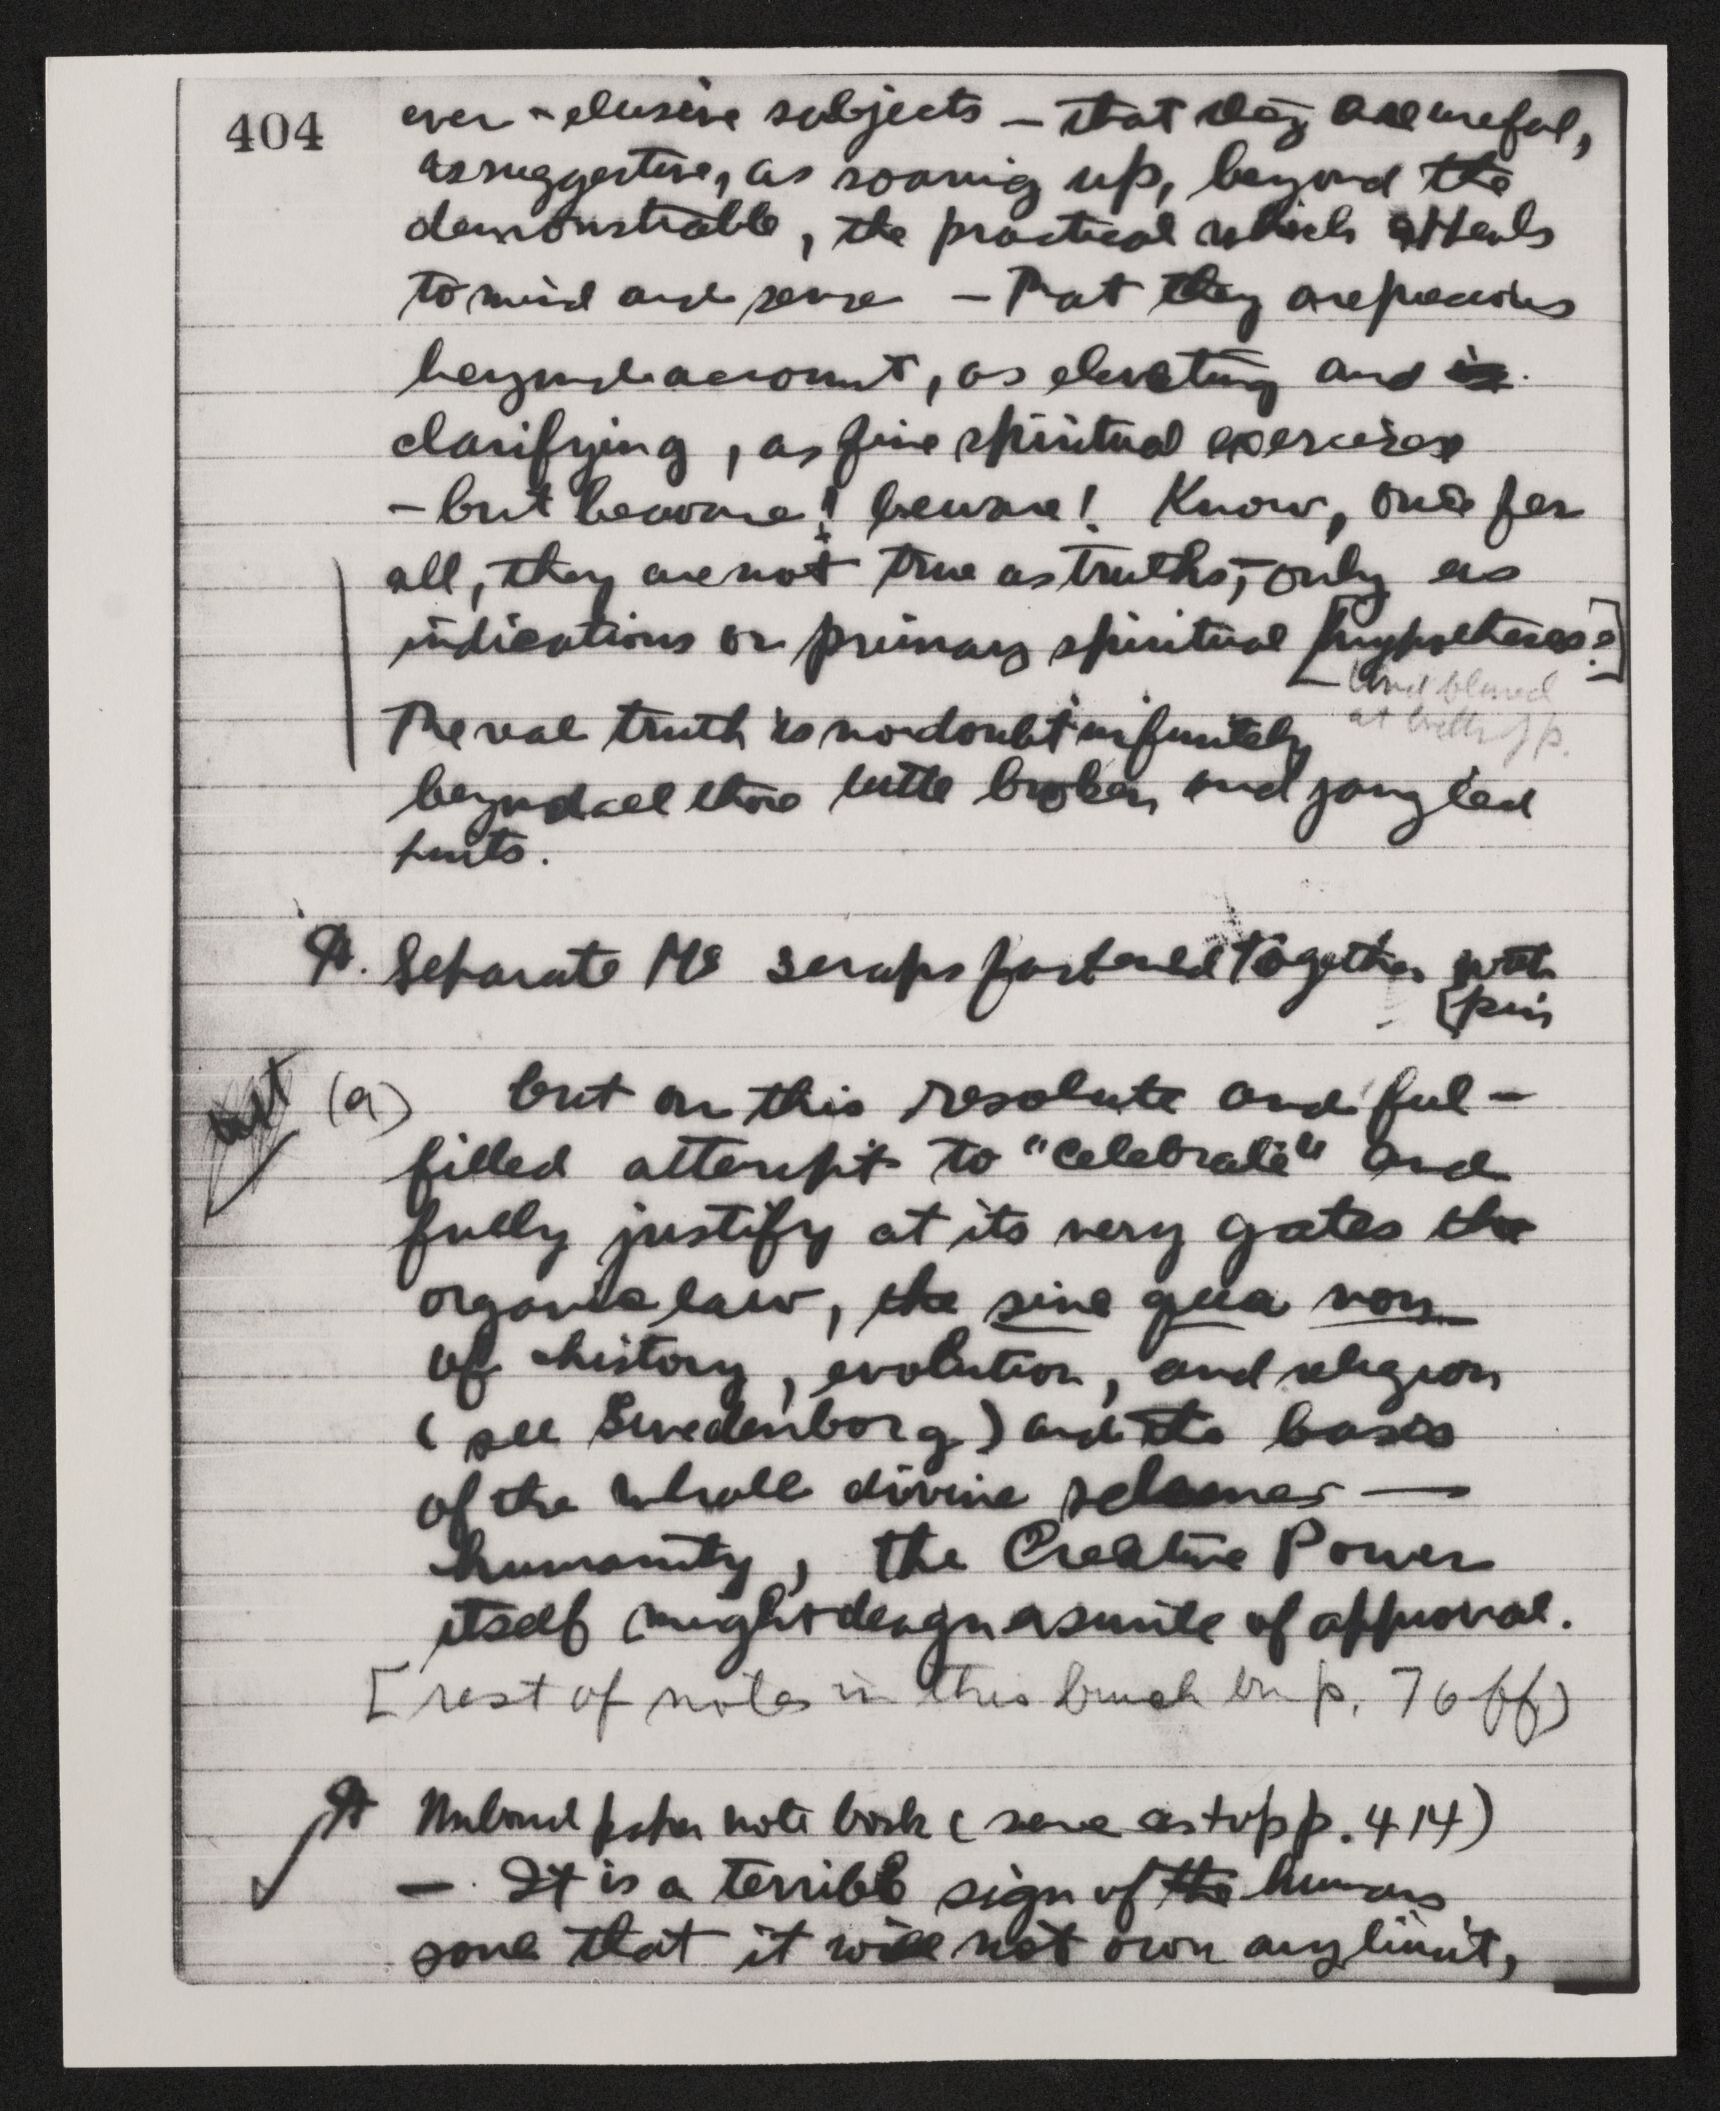 404
ever-elusive subjects – that they are useful,
as suggestive, as soaring up, beyond the
demonstrable, the practical which appeals
to mind and sense – That they are precious
beyond account, as elevating and
clarifying, as fine spiritual exercises
– but beware! beware! Know, once for
all, they are not true as truths, – only as
indications or primary spiritual [hypotheses.]
and
at p.
The real truth is no doubt infinitely
beyond all those little broken and jangled
hints.
Separate Ms scraps fastened together with
[pin
(a) but on this resolute and ful-
filled attempt to "celebrate" and
fully justify at its very gates the
organic law, the sine qua non
of history, evolution, and religion
(see Swedenborg) and the basis
of the whole divine schemes —
humanity, the Creative Power
itself might deign a smile of approval.
[rest of notes in this bunch on p. 76 ff)
Unbound paper note book (same as top p. 414)
— It is a terrible sign of the human
soul that it will not own any limit,